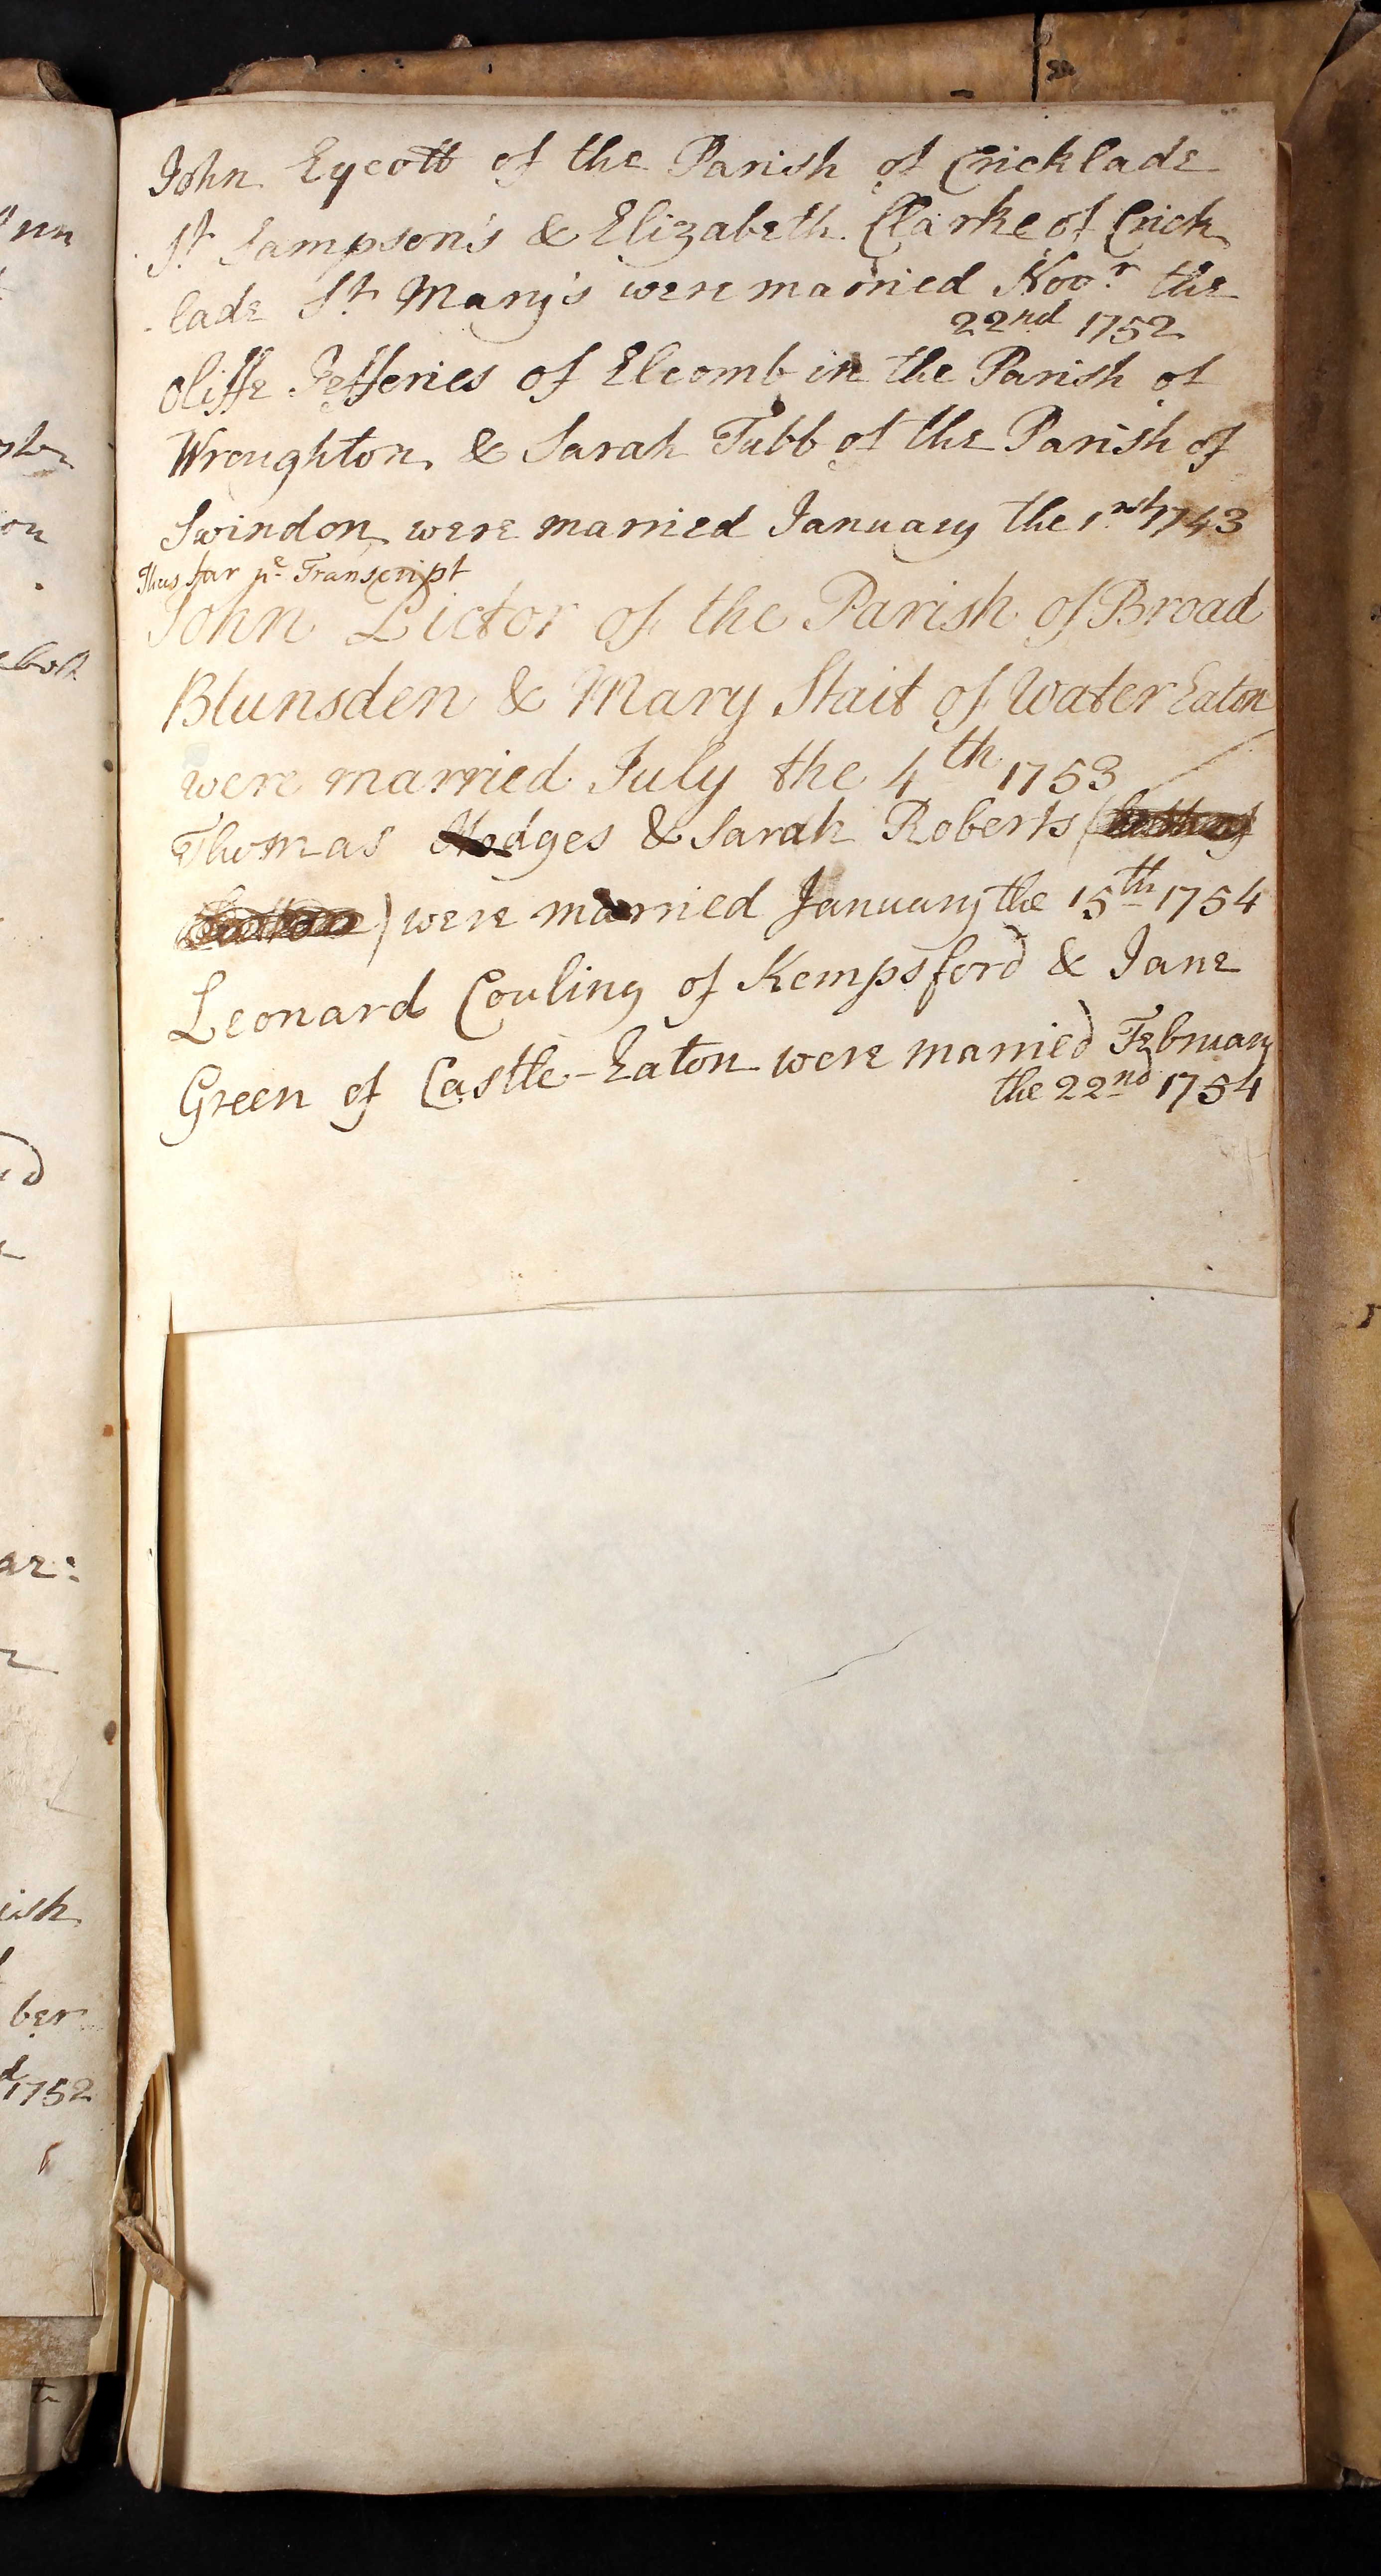 John Eycott of the Parish of Cricklade
St. Sampson's & Elizabeth Clarke of Crick
lade St. Mary's were married Novr. the
22nd 1752
Oliffe Jefferies of Elcomb in the Parish of
Wroughton & Sarah Tubb of the Parish of
Swindon were married January the 1rst 1743
Thus far ye Transcript
John Lictor of the Parish of Broad
Blunsden & Mary Stait of Water Eaton
were married July the 4th 1753
Thomas Hodges & Sarah Roberts (
) were married January the 15th 1754
Leonard Couling of Kempsford & Jane
Green of Castle-Eaton were married February
the 22nd 1754
ish
ber
d 1752